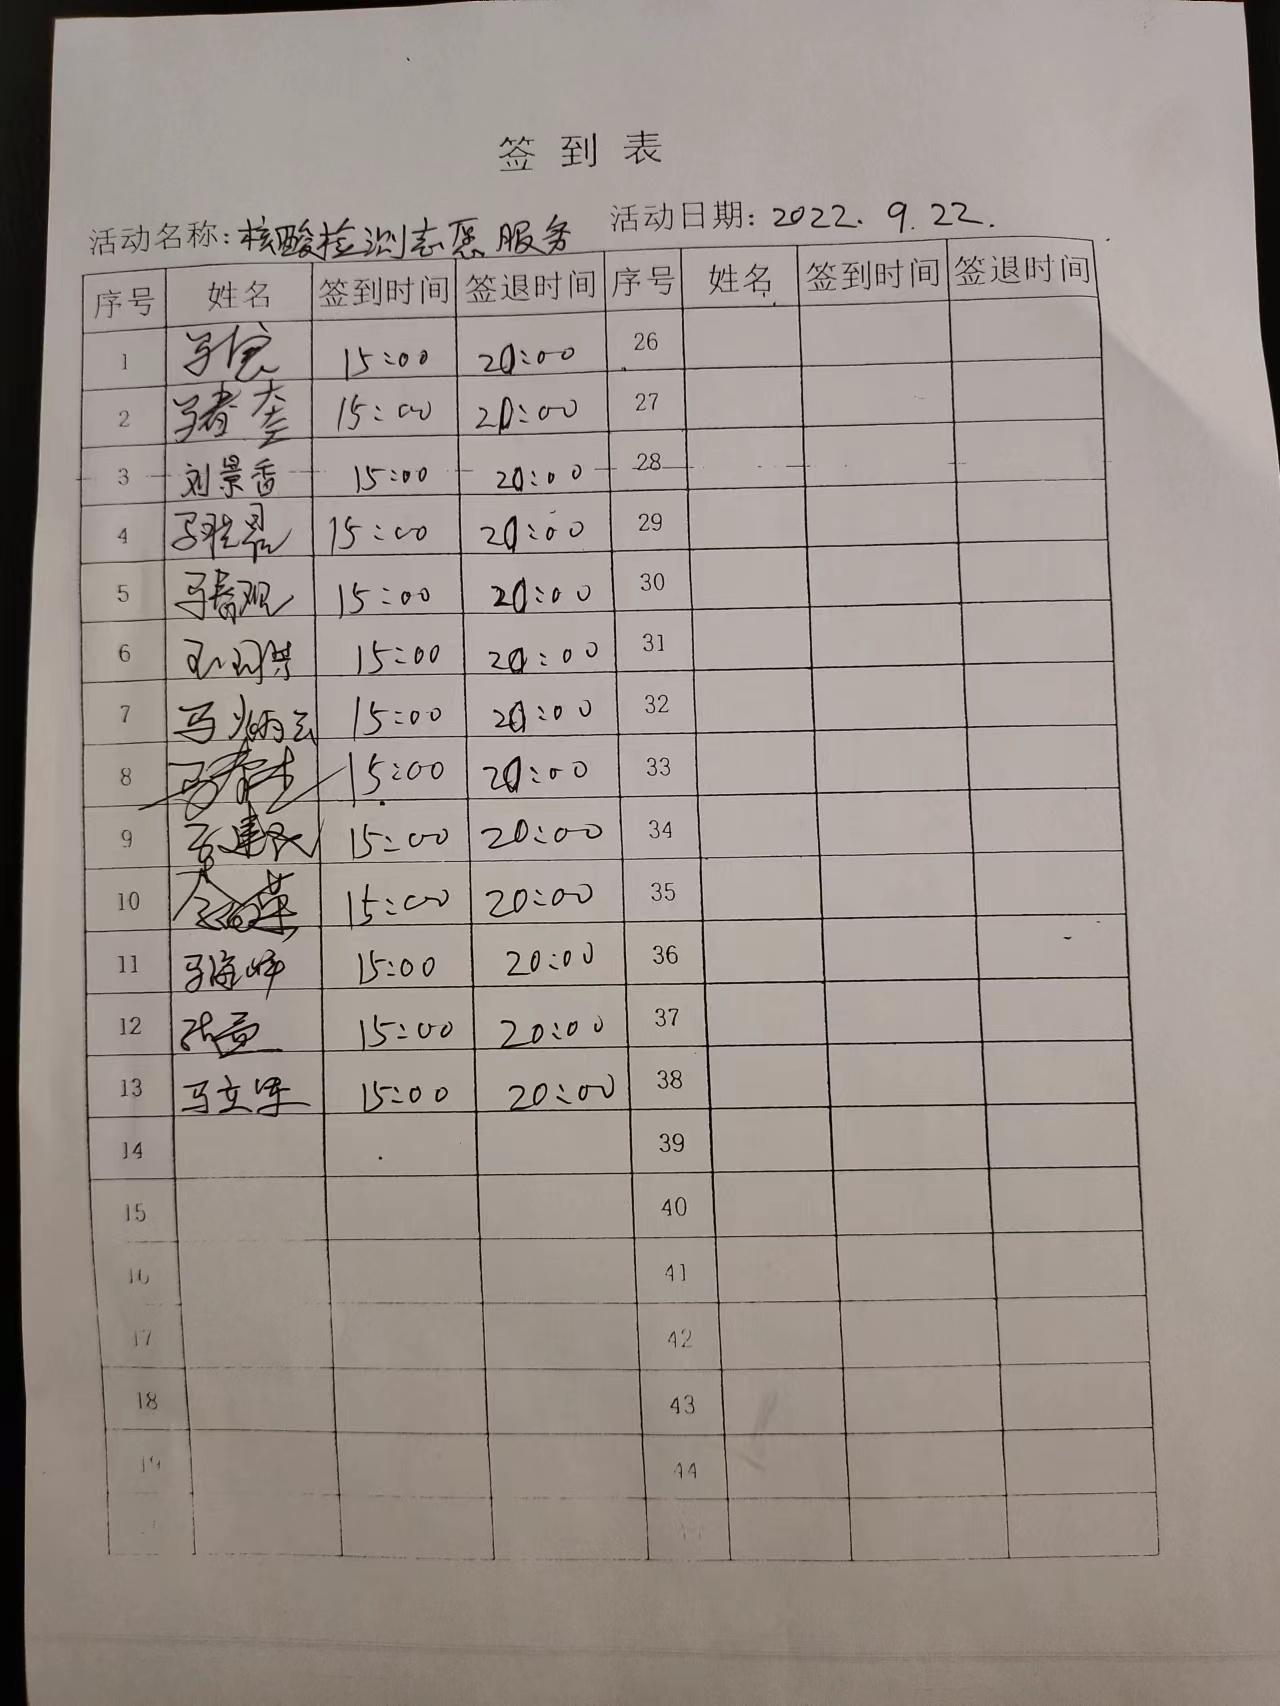 签到表
活动名称:核酸检测志愿服务 活动日期:2022.9.22.
序号 姓名 签到时间 签退时间 序号 姓名 签到时间 签退时间
1 15:00 20:00 26
2 15:00 20:00 27
3 刘景香 15:00 20:00 28
4 马 15:00 20:00 29
5 马春观 15:00 20:00 30
6 15:00 20:00 31
7 马炳云 15:00 20:00 32
8 马春 15:00 20:00 33
9 建民 15:00 20:00 34
10 15:00 20:00 35
11 马海峰 15:00 20:00 36
12 15:00 20:00 37
13 马立军 15:00 20:00 38
14 39
15 40
16 41
17 42
18 43
19 44